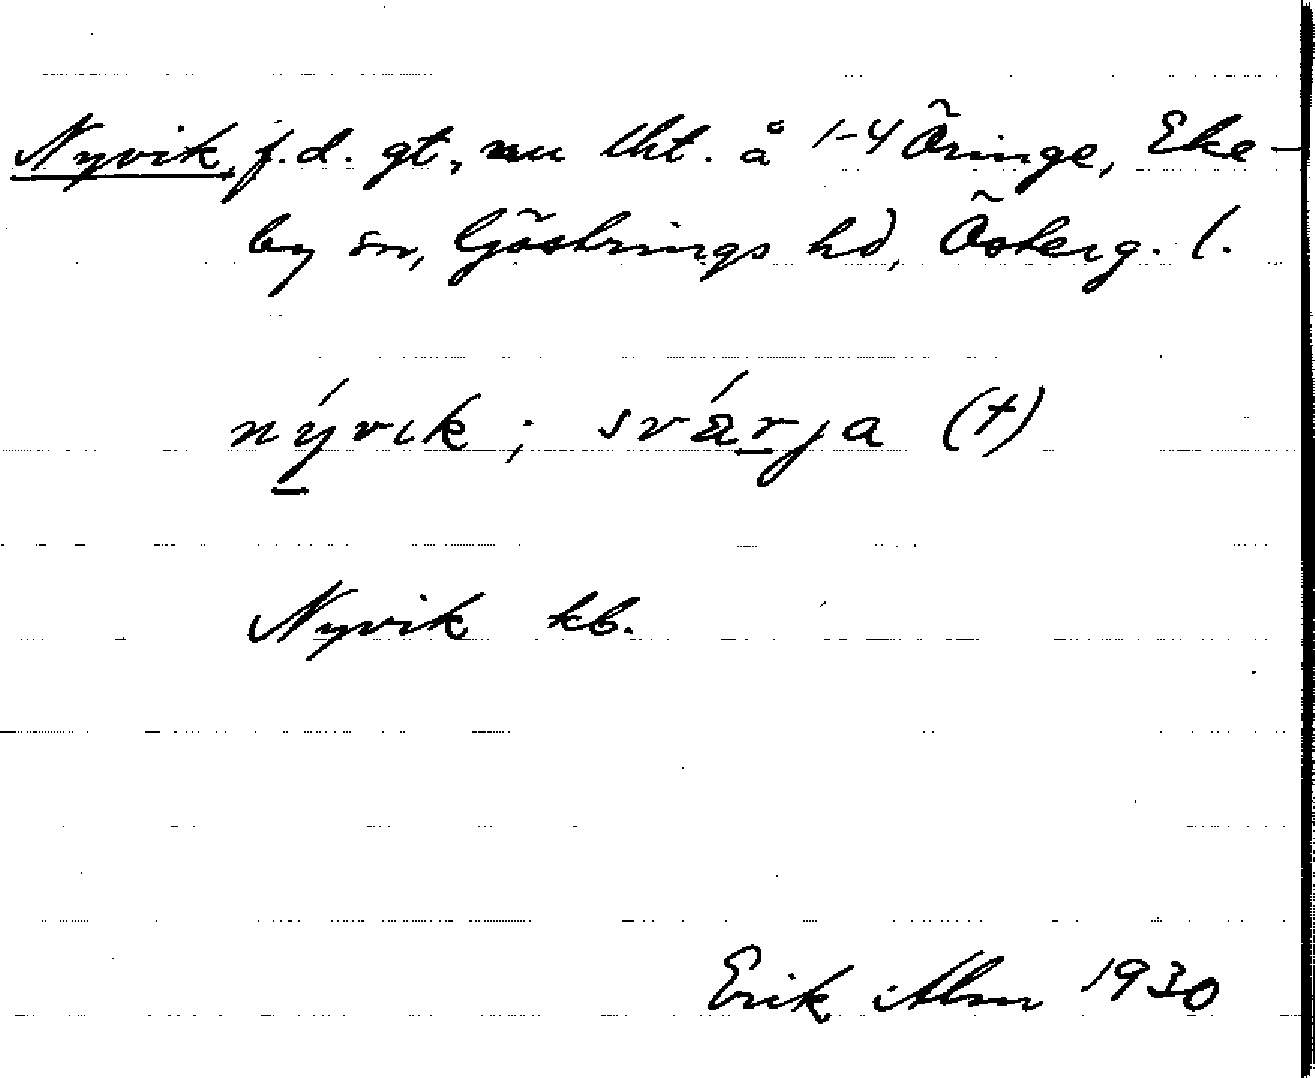 Nyvik, f.d. gt, nu lht. å 1-4 Öringe, Eke-
by sn, Göstrings hd, Österg. l.
nývık; svárja (†)
Nyvik kb.
Erik Alm 1930